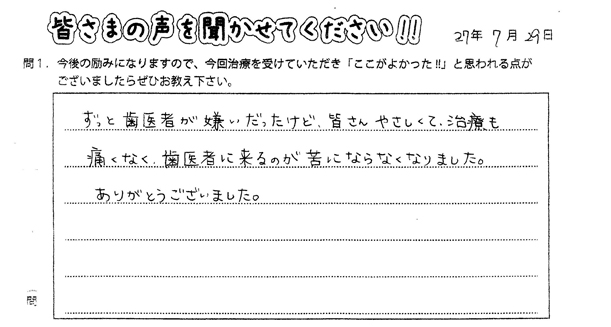 皆さまの声を聞かせてください!!
27年 7月 29日
問1. 今後の励みになりますので、今回治療を受けていただき「ここがよかった!!」と思われる点が
ございましたらぜひお教え下さい。
ずっと歯医者が嫌いだったけど、皆さんやさしくて、治療も
痛くなく、歯医者に来るのが苦にならなくなりました。
ありがとうございました。
問